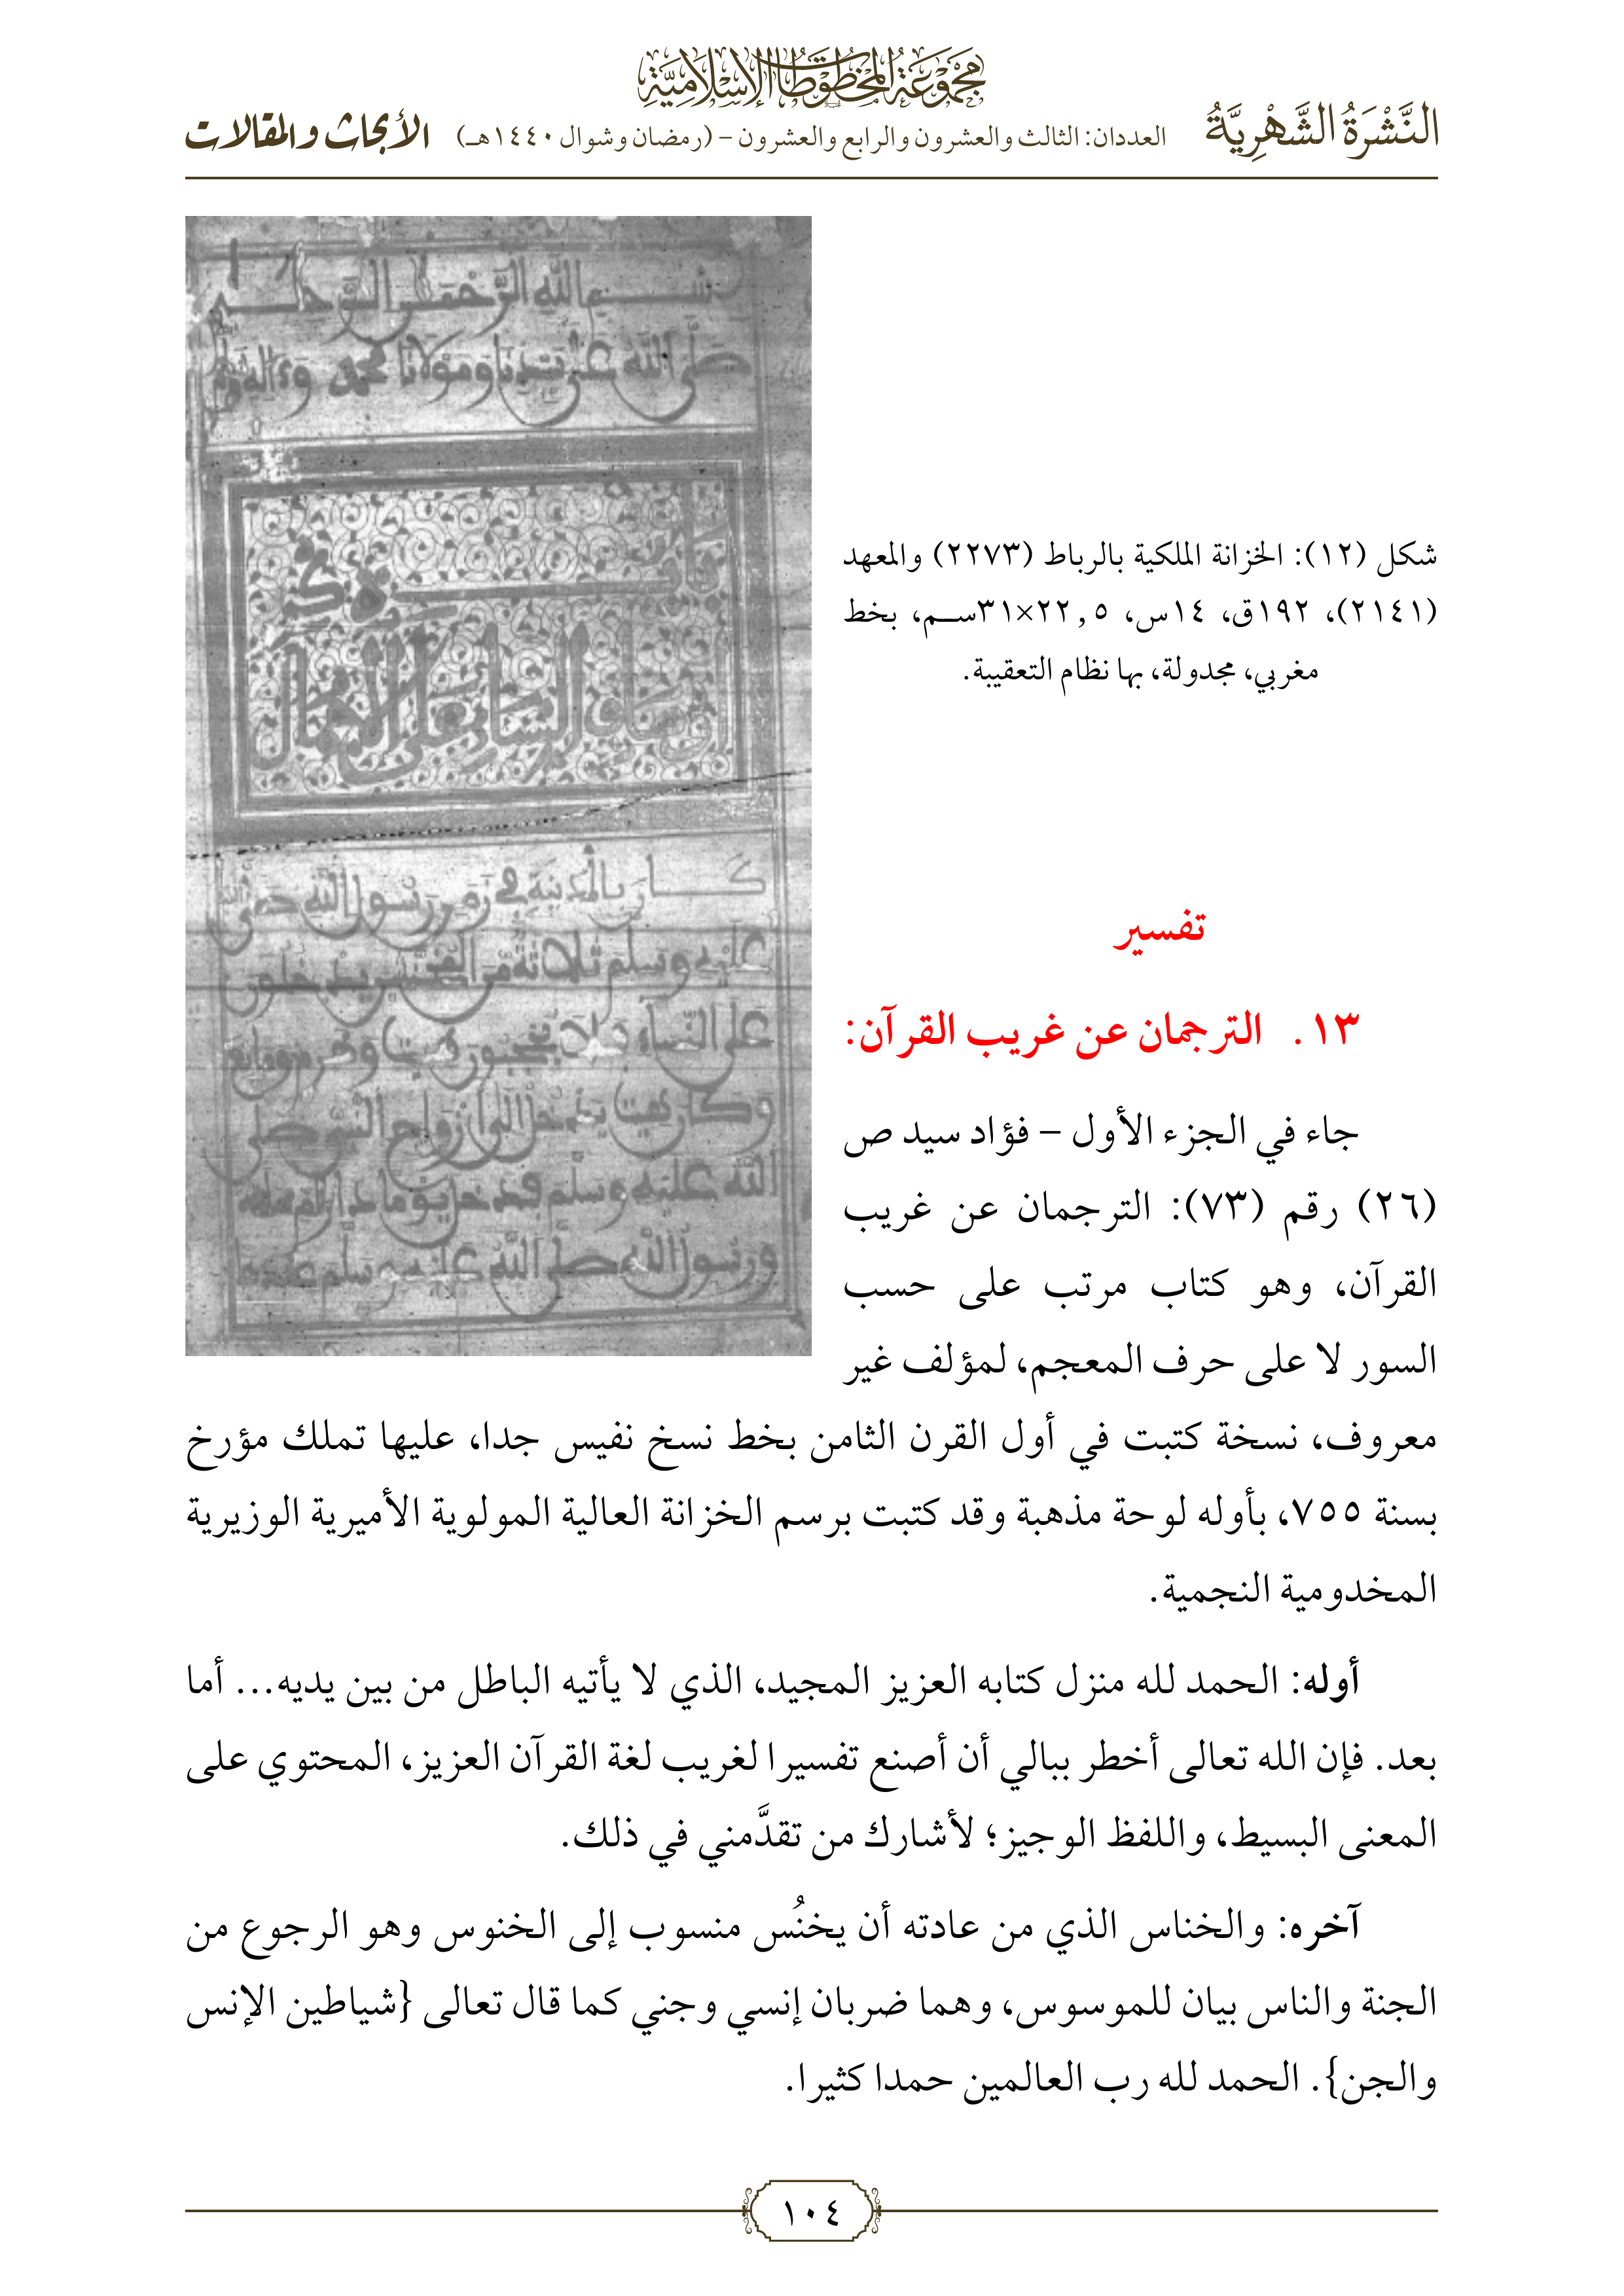 مجموعة المخطوطات الإسلامية
النَّشْرَةُ الشَّهْرِيَّةُ العددان: الثالث والعشرون والرابع والعشرون – (رمضان وشوال ١٤٤٠هـ) الأبحاث والمقالات
صَلَّى اللَّه عَلَى سَيِّدِنَا وَمَوْلَانَا مُحَمَّد
شكل (١٢): الخزانة الملكية بالرباط (٢٢٧٣) والمعهد
(٢١٤١)، ١٩٢ق، ١٤س، ٢٢,٥×٣١سـم، بخط
مغربي، مجدولة، بها نظام التعقيبة.
تفسير
١٣. الترجمان عن غريب القرآن:
جاء في الجزء الأول – فؤاد سيد ص
(٢٦) رقم (٧٣): الترجمان عن غريب
القرآن، وهو كتاب مرتب على حسب
السور لا على حرف المعجم، لمؤلف غير
معروف، نسخة كتبت في أول القرن الثامن بخط نسخ نفيس جدا، عليها تملك مؤرخ
بسنة ٧٥٥، بأوله لوحة مذهبة وقد كتبت برسم الخزانة العالية المولوية الأميرية الوزيرية
المخدومية النجمية.
أوله: الحمد لله منزل كتابه العزيز المجيد، الذي لا يأتيه الباطل من بين يديه... أما
بعد. فإن الله تعالى أخطر ببالي أن أصنع تفسيرا لغريب لغة القرآن العزيز، المحتوي على
المعنى البسيط، واللفظ الوجيز؛ لأشارك من تقدَّمني في ذلك.
آخره: والخناس الذي من عادته أن يخنُس منسوب إلى الخنوس وهو الرجوع من
الجنة والناس بيان للموسوس، وهما ضربان إنسي وجني كما قال تعالى {شياطين الإنس
والجن}. الحمد لله رب العالمين حمدا كثيرا.
١٠٤